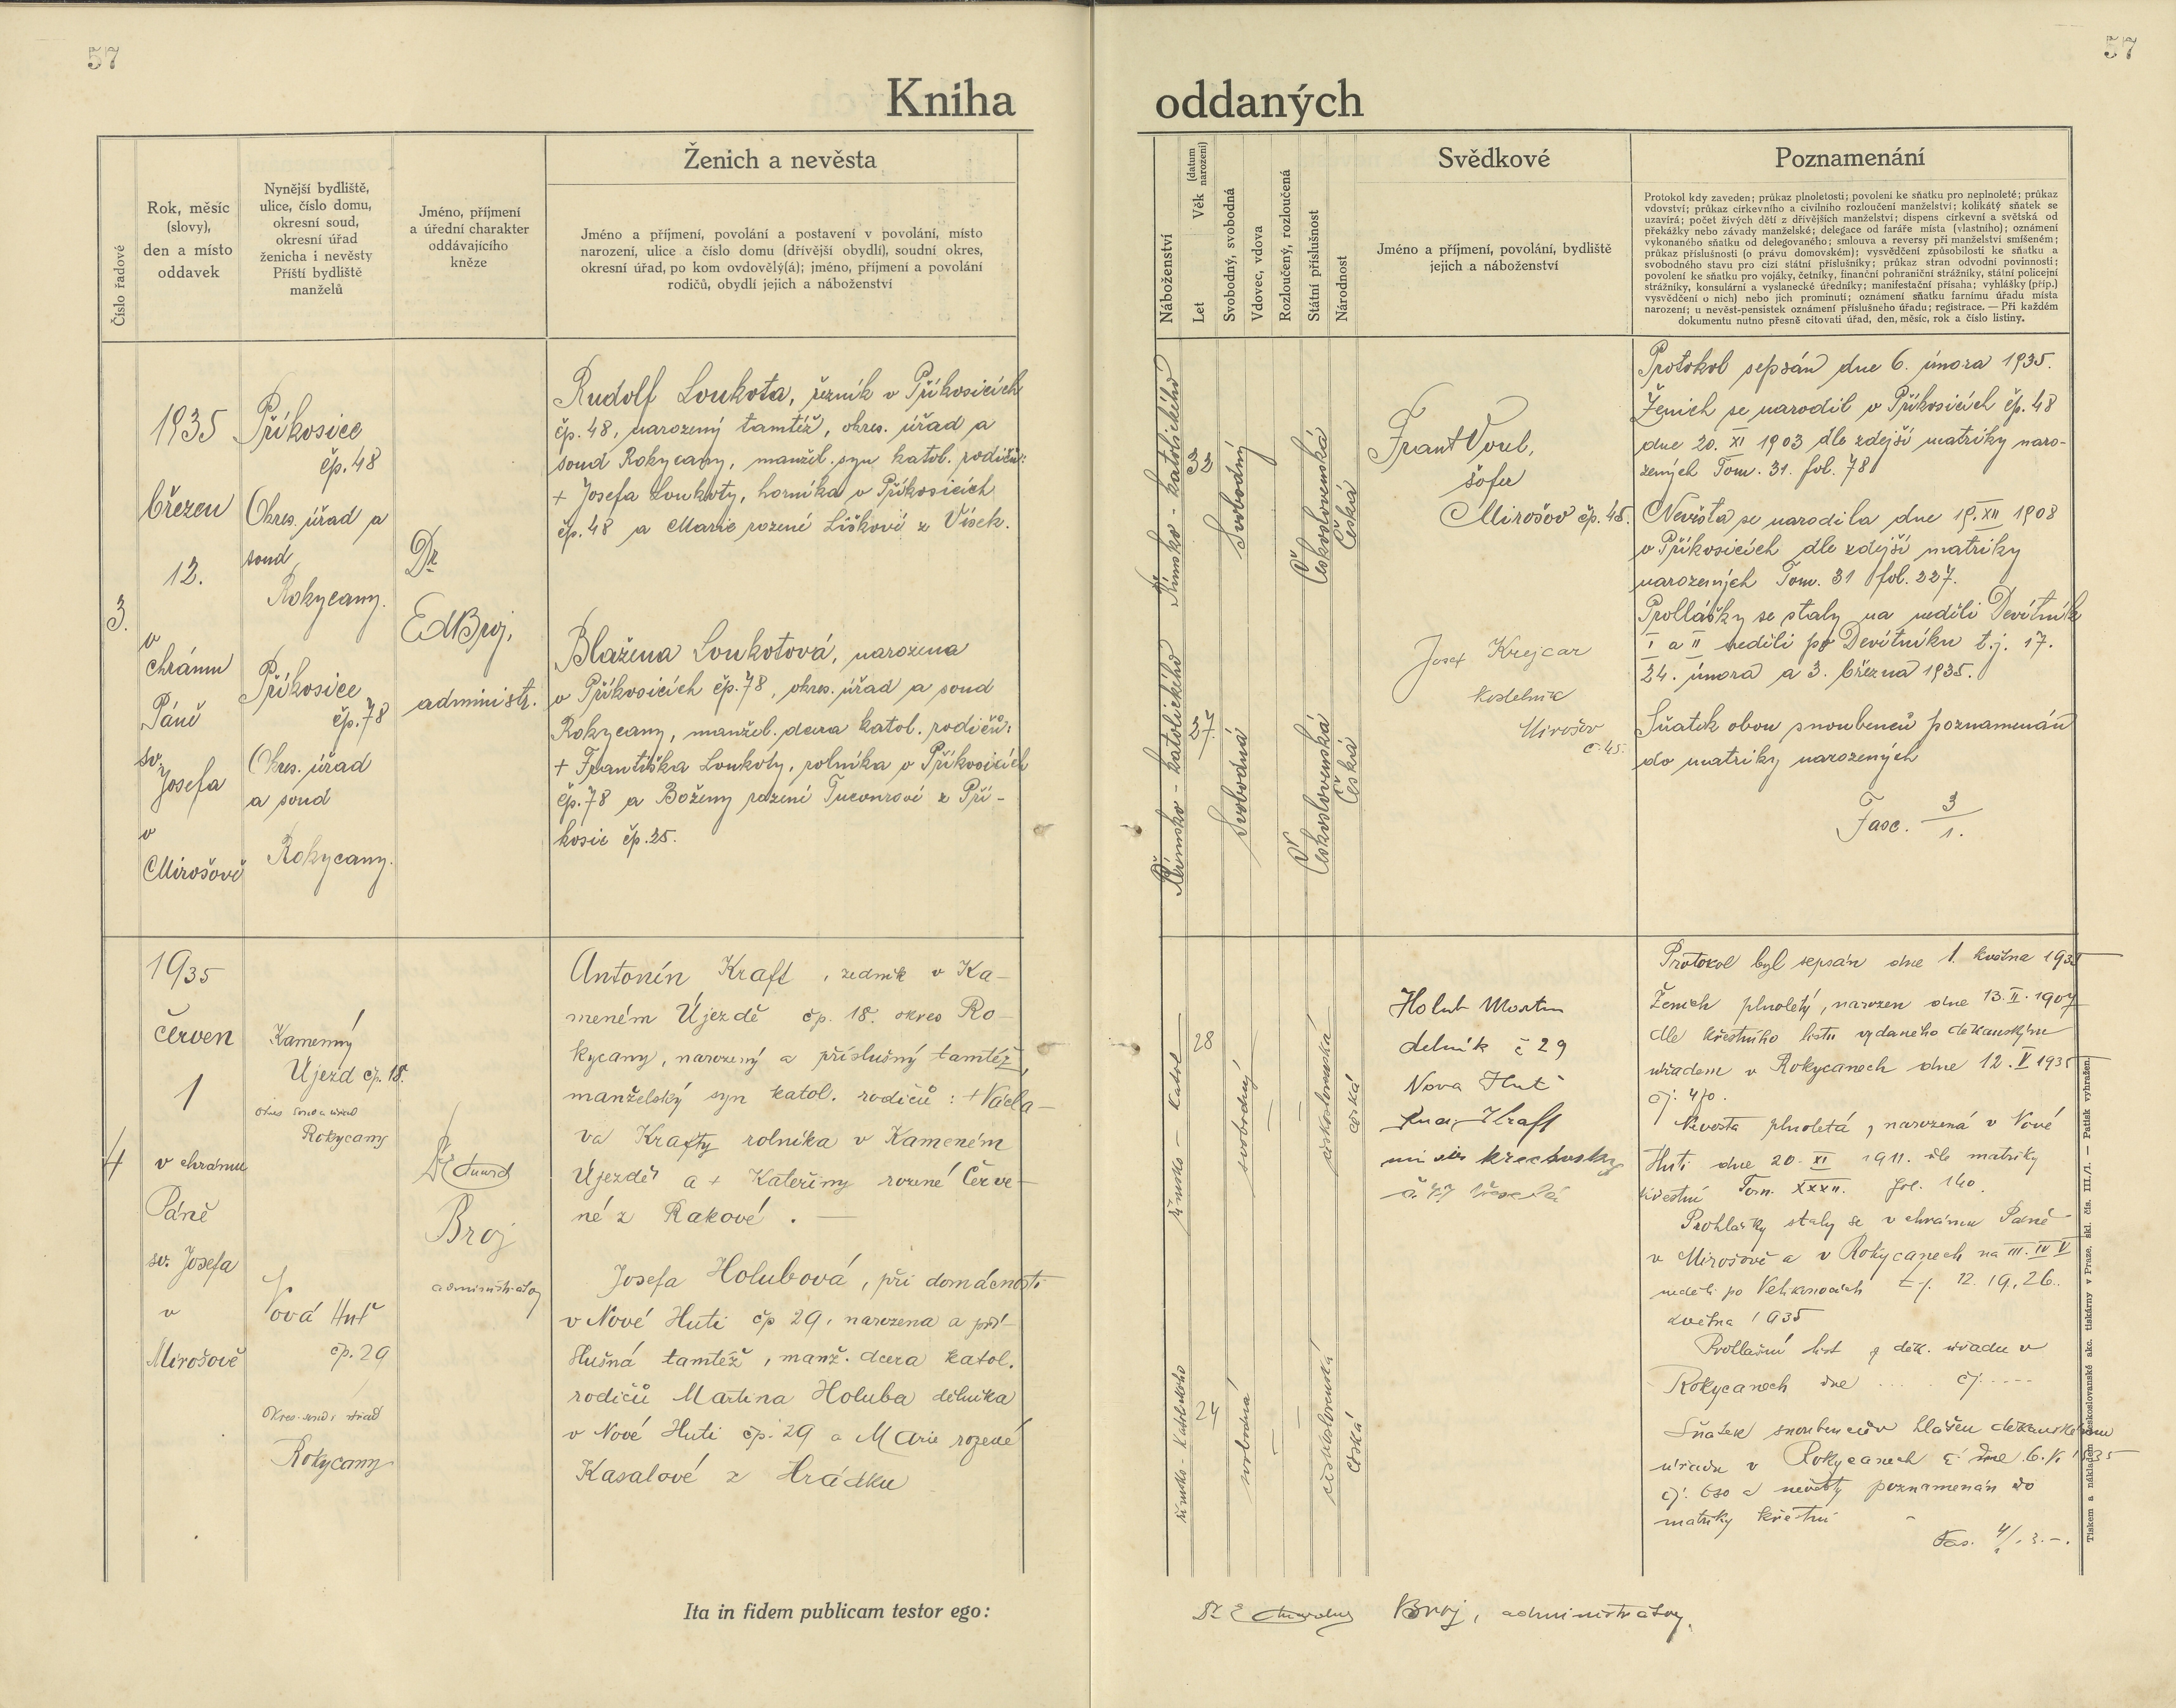 57
57
Kniha
oddaných
Číslo řadové
Rok, měsíc
(slovy),
den a místo
oddavek
Nynější bydliště,
ulice, číslo domu,
okresní soud,
okresní úřad
ženicha i nevěsty
Příští bydliště
manželů
Jméno, příjmení
a úřední charakter
oddávajícího
kněze
Ženich a nevěsta
Jméno a příjmení, povolání a postavení v povolání, místo
narození, ulice a číslo domu (dřívější obydlí), soudní okres,
okresní úřad, po kom ovdovělý(á); jméno, příjmení a povolání
rodičů, obydlí jejich a náboženství
Náboženství
Let
Věk (datum narození)
Svobodný, svobodná
Vdovec, vdova
Rozloučený, rozloučená
Státní příslušnost
Národnost
Svědkové
Jméno a příjmení, povolání, bydliště
jejich a náboženství
Poznamenání
Protokol kdy zaveden; průkaz plnoletosti; povolení ke sňatku pro neplnoleté; průkaz
vdovství; průkaz církevního a civilního rozloučení manželství; kolikátý sňatek se
uzavírá; počet živých dětí z dřívějších manželství; dispens církevní a světská od
překážky nebo závady manželské; delegace od faráře místa (vlastního); oznámení
vykonaného sňatku od delegovaného; smlouva a reversy při manželství smíšeném;
průkaz příslušnosti (o právu domovském); vysvědčení způsobilosti ke sňatku a
svobodného stavu pro cizí státní příslušníky; průkaz stran odvodní povinnosti;
povolení ke sňatku pro vojáky, četníky, finanční pohraniční strážníky, státní policejní
strážníky, konsulární a vyslanecké úředníky; manifestační přísaha; vyhlášky (příp.)
vysvědčení o nich) nebo jich prominutí; oznámení sňatku farnímu úřadu místa
narození; u nevěst-pensistek oznámení příslušného úřadu; registrace. — Při každém
dokumentu nutno přesně citovati úřad, den, měsíc, rok a číslo listiny.
3.
1935
březen
12.
v
chrámu
Páně
sv.
Josefa
v
Mirošově
Příkosice
čp. 48
Okres. úřad a
soud
Rokycany.
Příkosice
čp. 78
Okres. úřad
a soud
Rokycany.
Dr
Ed Broj,
administr.
Rudolf Loukota, řezník v Příkosicích
čp. 48, narozený tamtéž, okres. úřad a
soud Rokycany, manžel. syn katol. rodičů:
+ Josefa Loukoty, horníka v Příkosicích
čp. 48 a Marie rozené Liškové z Vísek.
Blažena Loukotová, narozena
v Příkosicích čp. 78, okres. úřad a soud
Rokycany, manžel. dcera katol. rodičů:
+ Františka Loukoty, rolníka v Příkosicích
čp. 78 a Boženy rozené z Pří-
kosic čp. 25.
Římsko - katolického
32
Svobodný
Československá
Česká
Římsko - katolického
27.
Svobodná
Československá
Česká
Frant Voul,
šofer
Mirošov čp. 45.
Josef Krejcar
kostelník
Mirošov
č. 45.
Protokol sepsán dne 6. února 1935.
Ženich se narodil v Příkosicích čp. 48
dne 20. XI 1903 dle zdejší matriky naro-
zených Tom. 31. fol. 78
Nevěsta se narodila dne 19. XII 1908
v Příkosicích dle zdejší matriky
narozených Tom. 31 fol. 227.
Prohlášky se staly na neděli Devítník
I a II neděli po Devítníku t.j. 17.
24. února a 3. března 1935.
Sňatek obou snoubenců poznamenán
do matriky narozených
Fasc. 3/1.
4
1935
červen
1
v chrámu
Páně
sv. Josefa
v
Mirošově
Kamenný
Újezd čp. 18.
okres soud a úřad
Rokycany
Nová Huť
čp. 29
Okres. soud i úřad
Rokycany
Dr Eduard
Broj
administrátor
Antonín Kraft, zedník v Ka-
meném Újezdě čp. 18. okres Ro-
kycany, narozený a příslušný tamtéž,
manželský syn katol. rodičů: + Václa-
va Krafty rolníka v Kameném
Újezdě a + Kateřiny rozené Červe-
né z Rakové. —
Josefa Holubová, při domácnosti
v Nové Huti čp 29, narozena a pří-
slušná tamtéž, manž. dcera katol.
rodičů Martina Holuba dělníka
v Nové Huti čp. 29 a Marie rozené
Kasalové z Hrádku
římsko - katol
28
svobodný
československá
česká
římsko - katolického
24
svobodná
československá
česká
Holub Martin
delník č 29
Nova Huť
Kraft
Protokol byl sepsán dne 1. května 1935
Ženich plnoletý, narozen dne 13. II. 1907
dle křestního listu vydaného děkanským
úřadem v Rokycanech dne 12. V 1935
čj: 470.
Nevěsta plnoletá, narozená v Nové
Huti dne 20. XI 1911. dle matriky
křestní Tom. XXXII. fol. 140.
Prohlášky staly se v chrámu Páně
v Mirošově a v Rokycanech na III. IV V
neděli po Velikonocích t.j. 12. 19. 26.
května 1935
Prohlašní list děk. úřadu v
Rokycanech dne .... čj.....
Sňatek snoubenců hlášen děkanskému
úřadu v Rokycanech dne 6. VI 1935
čj. a nevěsty poznamenán do
matriky křestní
Fas. 4/
Tiskem a nákladem Československé akc. tiskárny v Praze, skl. čís. III./1. — Patisk vyhražen.
Ita in fidem publicam testor ego:
Dr Eduard Broj, administrátor.